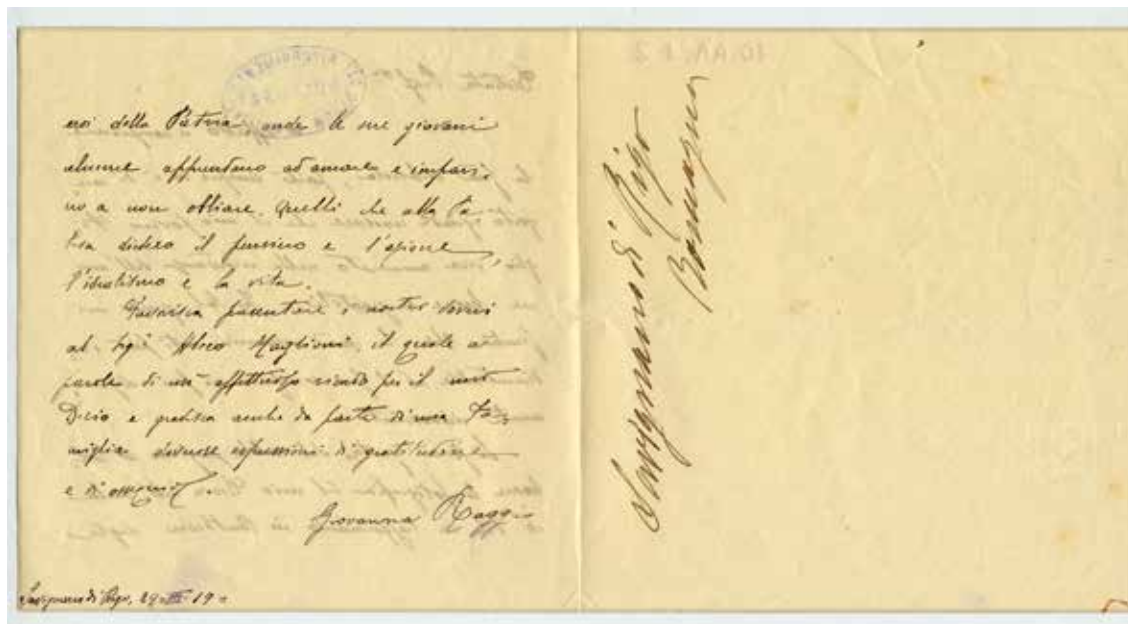 eroi della Patria onde le sue giovani
alunne apprendano ad amare e impari,
no a non obliare quelli che alla Pa,
tria diedero il pensiero e l'azione,
l'idealismo e la vita.
Favorisca presentare i nostri doveri
al Sig. Maglioni, il quale a
parole di un affettuoso ricordo per il mio
Decio e gradisca anche da parte di mia Fa,
miglia doverose espressioni di gratitudine
e di
Giovanna
Savignano di Rigo, 29 19
Savignano di Rigo
Romagna
10.AA. 2